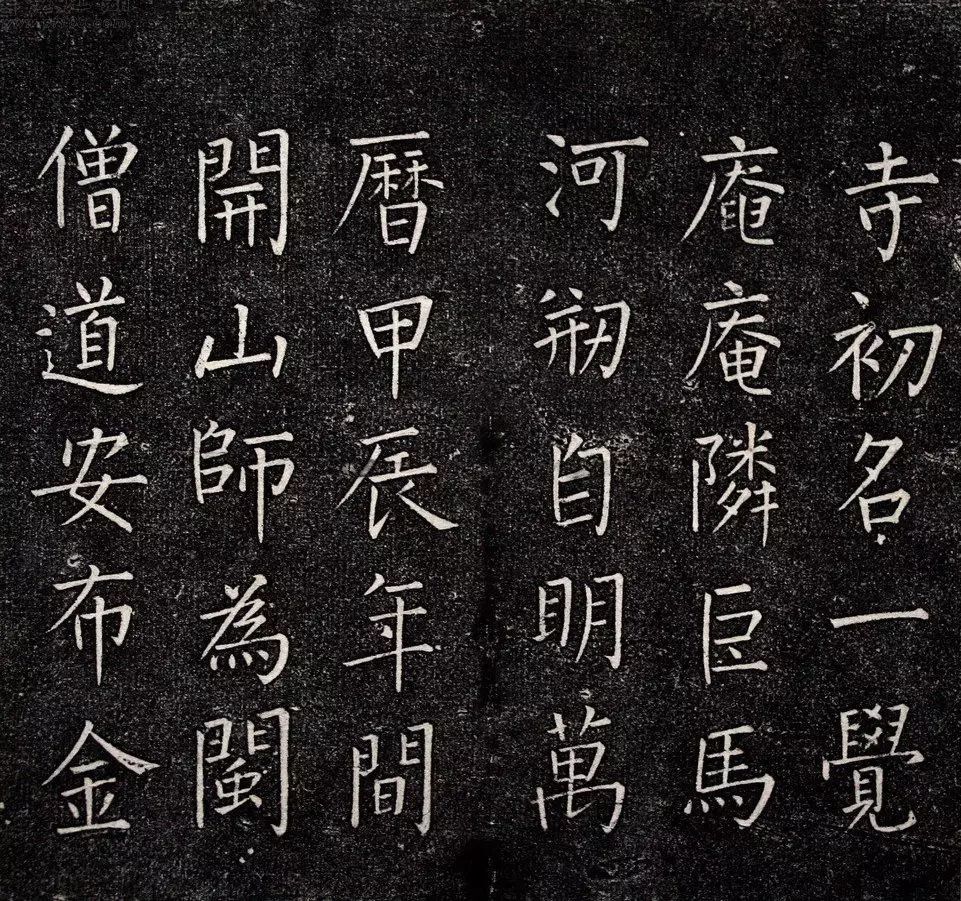 寺初名一覺
庵庵隣巨馬
河剙自明萬
曆甲辰年間
開山師為閩
僧道安布金